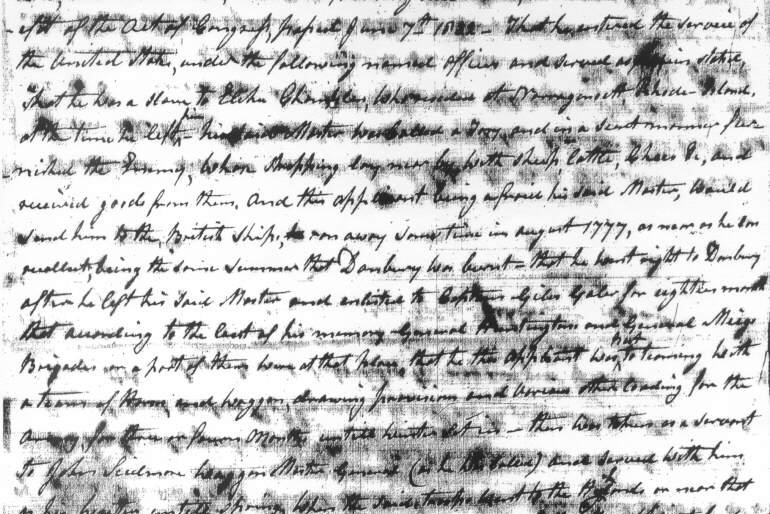 efit of the Act of Congress, passed June 7th 1832 - That he entered the service of
the United States, under the following named officers and served as herein stated,
that he was a slave to Elihu Champlen, who resided at Narragansett, Rhode-Island,
at the time he left him - his said Master was Called a Tory, and in a Secret manner fur-
nished the Enemy, when Shipping lay near by, with Sheep, Cattle, Cheese &c, and
received goods from them. And this applicant being afraid his said Master, would
send him to the British Ships, ran away sometime in august 1777, as near as he can
recollect being the same summer that Danbury was burnt - that he went right to Danbury
after he left his said Master and enlisted to Captain Giles Galer for eighteen month
that according to the best of his memory General Huntington and General Meigs
Brigades or a part of them were at that place, that he this applicant was put to teaming with
a team of Horses and waggon, drawing provisions and various other loading for the
army for three or four Months until winter set in - then was taken as a servant
to John Skidmore Waggon Master General (as he was called) and served with him
as his until Spring, when the said troops went to the or near that